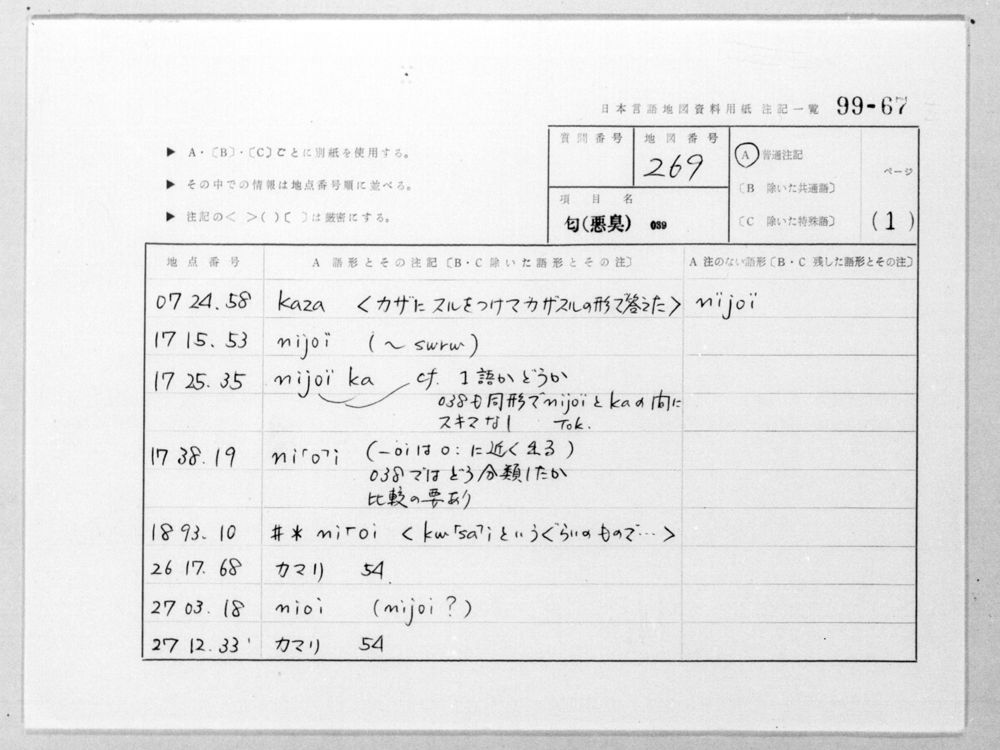 日本言語地図資料用紙 注記一覧 99-67
▶ A・〔B〕・〔C〕ごとに別紙を使用する。
▶ その中での情報は地点番号順に並べる。
▶ 注記の< >( )〔 〕は厳密にする。
質問番号 地図番号
269
項目名
匂(悪臭) 039
A 普通注記
〔B 除いた共通語〕
〔C 除いた特殊語〕
ページ
(1)
地点番号 A 語形とその注記〔B・C 除いた語形とその注〕 A 注のない語形〔B・C 残した語形とその注〕
07 24.58 kaza <カザに スルをつけてカザスルの形で答えた> nïjoï
17 15.53 nijoï (~ sɯrɯ)
17 25.35 nijoï ka cf. 1語かどうか
038も同形でnijoïとkaの間に
スキマなし Tok.
17 38.19 ni「o」i (-oiはo:に近く
038ではどう分類したか
比較の要あり
18 93.10 #* ni「oi <kɯ「sa」iというぐらいのもので…>
26 17.68 カマリ 54
27 03.18 nioi (nijoi?)
27 12.33 カマリ 54